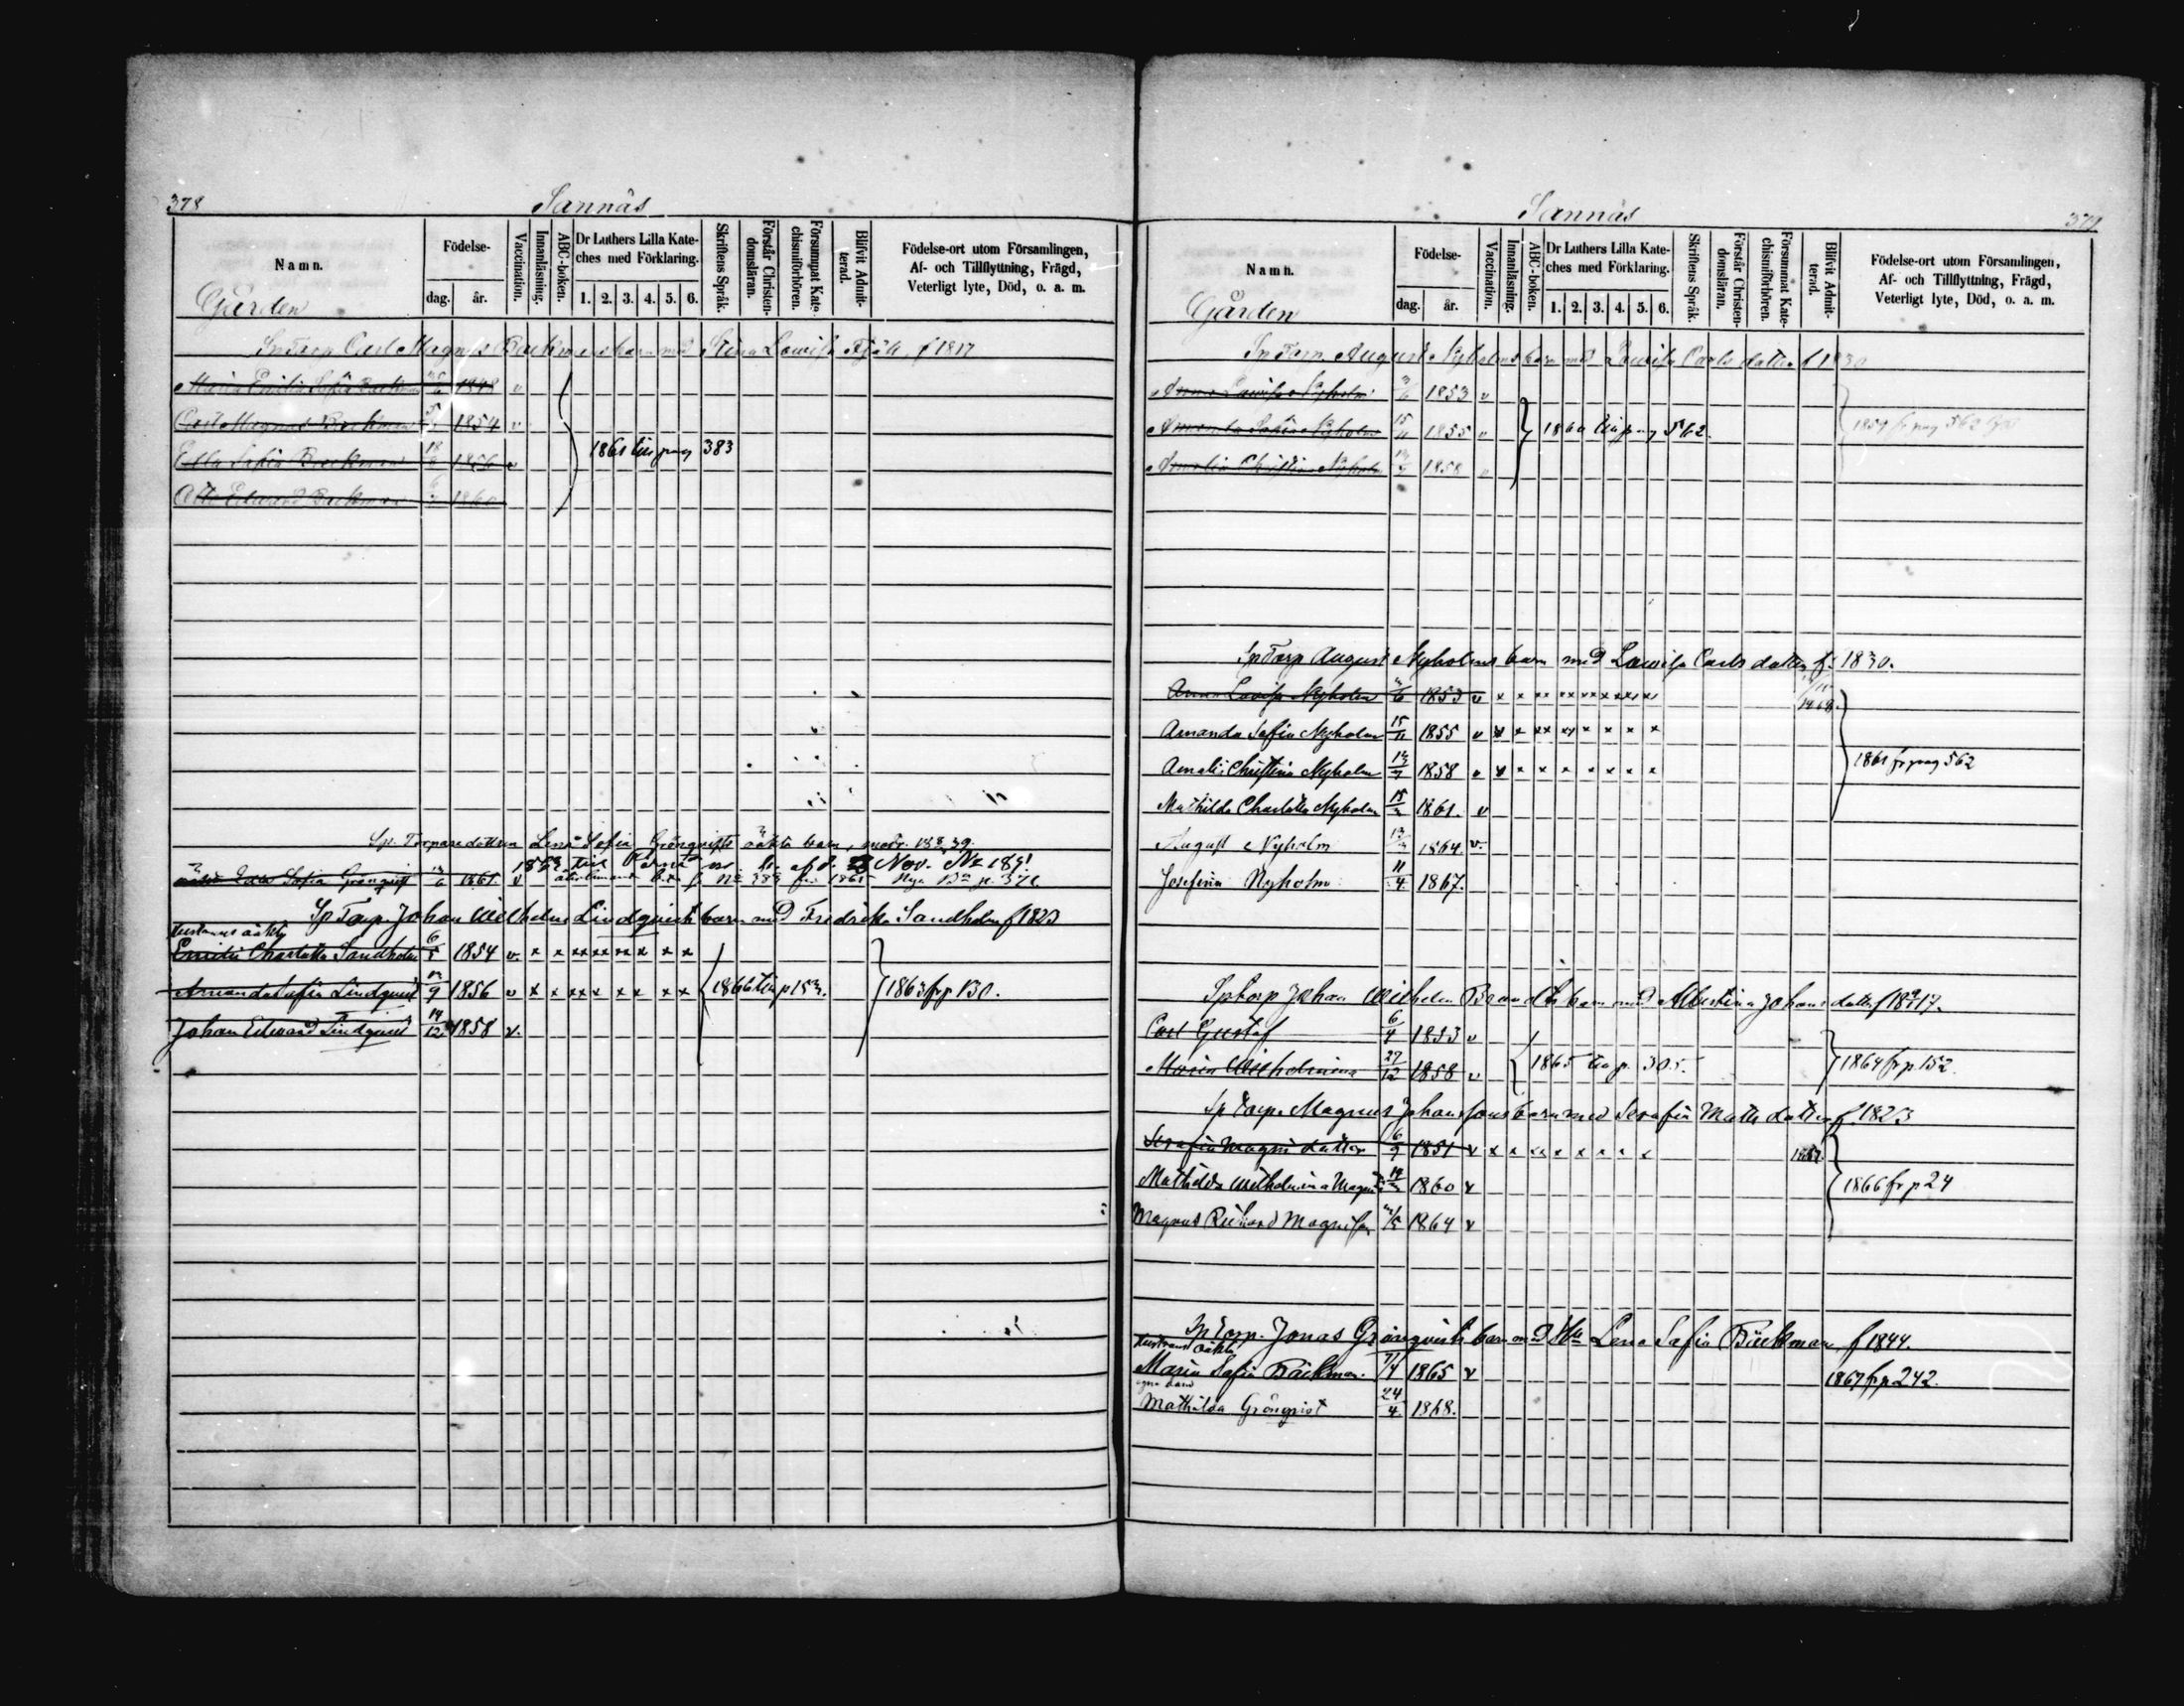 378 Sannäs
Namn. Födelse- dag. år. Vaccination. Innanläsning. ABC-boken. Dr Luthers Lilla Kateches med Förklaring. 1. 2. 3. 4. 5. 6. Skriftens Språk. Förstår Christendomsläran. Försummat Katechismiförhören. Blifvit Admitterad. Födelse-ort utom Församlingen, Af- och Tillflyttning, Frägd, Veterligt lyte, Död, o. a. m.
Gården
Sp Torp Carl Magnus Backmans barn med Stina Lovisa f 1817
Maria Emilia Sofia Backman 1848 v
Carl Magnus Backman 1854 v
Edla Sofia Backman 18 1856 v
1861 till pag 383
Otto Edward Backman 6 1860
Sp. Torparedottren Lena Sofia Grönqvists oäkta barn, modr.
Edla Sofia Grönqvist 1861. v
Sp Torp. Johan Wilhelm Lindqvists barn med Fredrika Sandholm f 1823
hustruns oäkta
Emilia Charlotta Sandholm 6/5 1854 v x x xx xx xx x x x
Amanda Sofia Lindqvist 9 1856 v x x xx x x x x x 1866 till p 153. 1863 fr p 130.
Johan Edward Lindqvist 19/12 1858 v.
Sannäs 379
Namn. Födelse- dag. år. Vaccination. Innanläsning. ABC-boken. Dr Luthers Lilla Kateches med Förklaring. 1. 2. 3. 4. 5. 6. Skriftens Språk. Förstår Christendomsläran. Försummat Katechismiförhören. Blifvit Admitterad. Födelse-ort utom Församlingen, Af- och Tillflyttning, Frägd, Veterligt lyte, Död, o. a. m.
Gården
Sp Torp August Nyholms barn med Lovisa Carls dotter f 1830
Anna Lovisa Nyholm 1853 v
Amanda Sofia Nyholm 15/11 1855 v 1860 till pag 562. 1859 fr pag 562
Amalia Christina Nyholm 1858 v
Sp Torp August Nyholms barn med Lovisa Carls dotter f. 1830.
Anna Lovisa Nyholm 1853 v x x xx xx x x xx x 1868.
Amanda Sofia Nyholm 15/11 1855 v x x xx xx x x x x
Amalia Christina Nyholm 1858 v x x x x x x x x 1861 fr pag 562
Mathilda Charlotta Nyholm 15 1861. v
August Nyholm 1864. v.
Josefina Nyholm 11/4 1867.
Sp torp Johan Wilhelm barn med Albertina Johans dotter
Carl Gustaf 6/4 1853 v
Maria Wilhelmina 27/12 1858 v 1865 till p. 305. 1864 fr p 152
Sp Torp. Magnus Johanssons barn med Serafia Matts dotter f. 1823
Serafia Magni dotter 6/9 1851 v x x xx x x x x x
Mathilda Wilhelmina 19 1860 v 1866 fr p 24
Magnus Richard Magnisson 1864 v
Sp Torp. Jonas Grönqvists barn med Lena Sofia Bäckman f 1844.
hustruns oäkta
Maria Sofia Bäckman. 1865 v 1867 fr p 242.
Mathilda Grönqvist 24/4 1868.